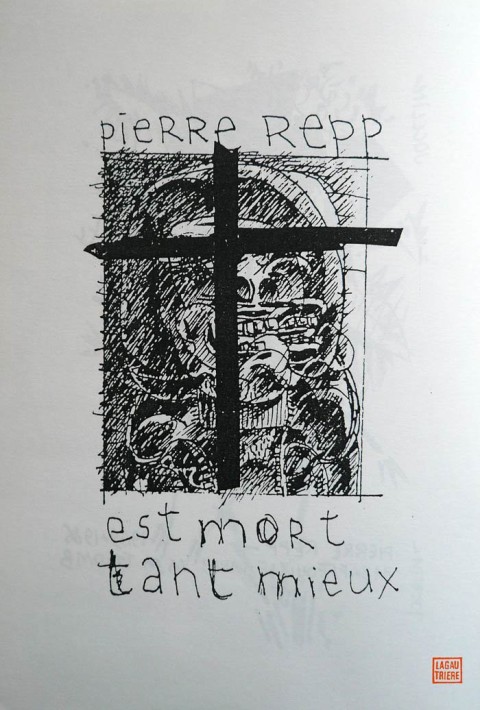 pieRRe Repp
est mort
tant mieux
LAGAU
TRIERE